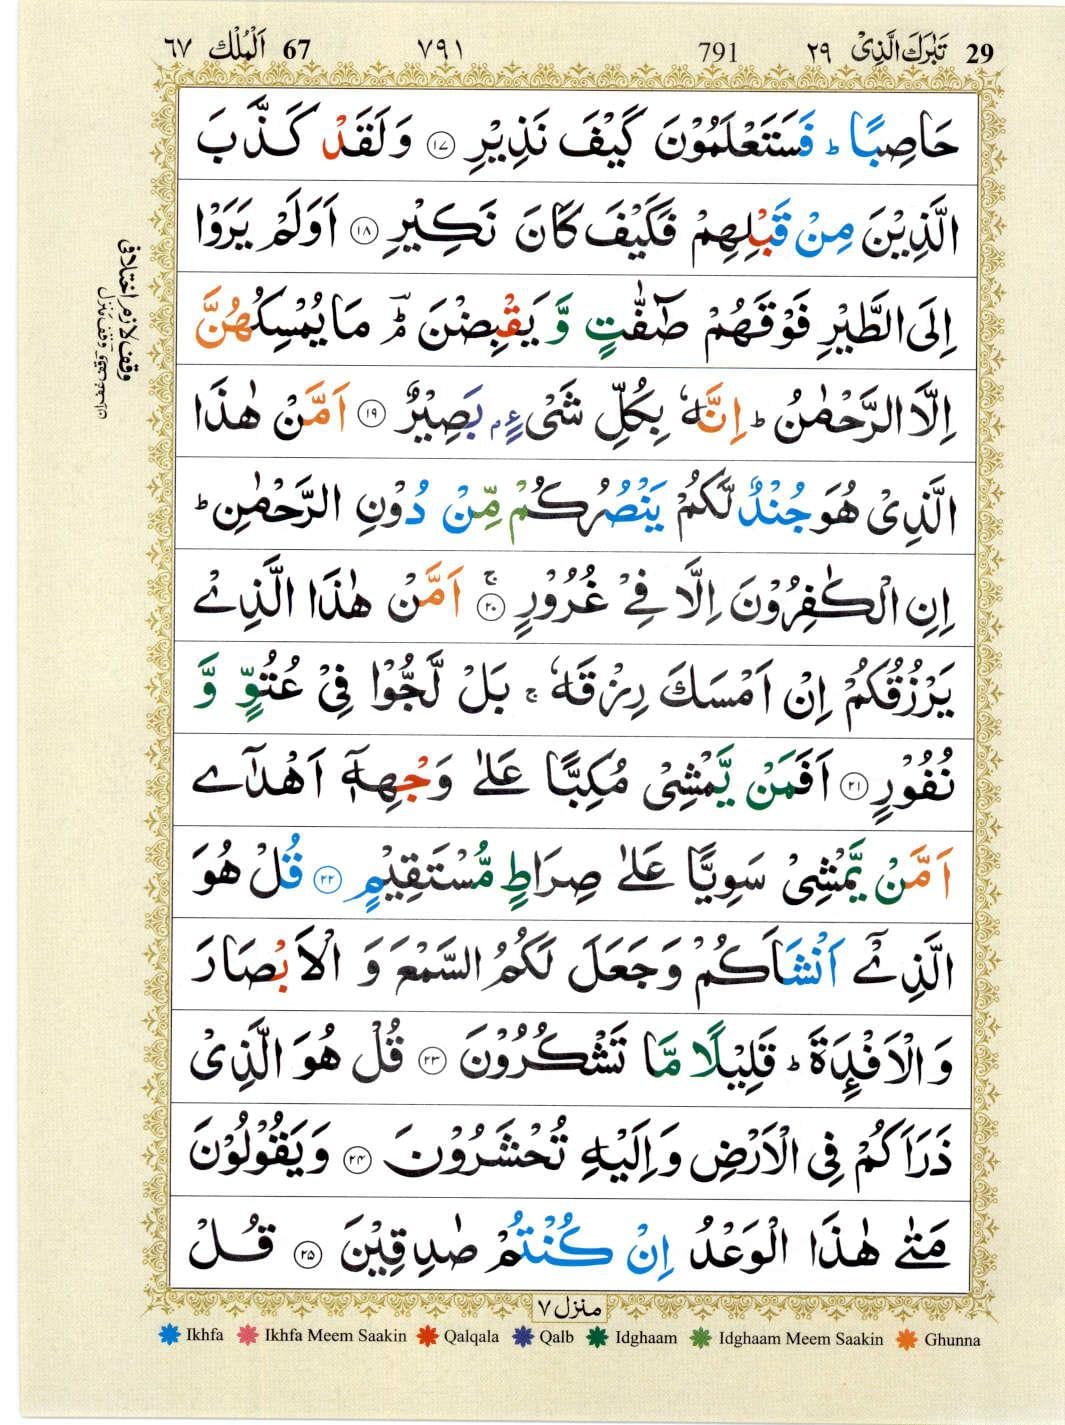 29 تَبٰرَكَ الَّذِیْ ٢٩ 791 ٧٩١ 67 اَلْمُلْك ٦٧
حَاصِبًا ؕ فَسَتَعْلَمُوْنَ كَیْفَ نَذِیْرِ ﴿۱۷﴾ وَلَقَدْ كَذَّبَ
الَّذِیْنَ مِنْ قَبْلِهِمْ فَكَیْفَ كَانَ نَكِیْرِ ﴿۱۸﴾ اَوَلَمْ یَرَوْا
اِلَی الطَّیْرِ فَوْقَهُمْ صٰٓفّٰتٍ وَّ یَقْبِضْنَ ؔۘؕ مَا یُمْسِكُهُنَّ
اِلَّا الرَّحْمٰنُ ؕ اِنَّهٗ بِكُلِّ شَیْءٍۭ بَصِیْرٌ ﴿۱۹﴾ اَمَّنْ هٰذَا
الَّذِیْ هُوَ جُنْدٌ لَّكُمْ یَنْصُرُكُمْ مِّنْ دُوْنِ الرَّحْمٰنِ ؕ
اِنِ الْكٰفِرُوْنَ اِلَّا فِیْ غُرُوْرٍ ﴿۲۰﴾ ۚ اَمَّنْ هٰذَا الَّذِیْ
یَرْزُقُكُمْ اِنْ اَمْسَكَ رِزْقَهٗ ۚ بَلْ لَّجُّوْا فِیْ عُتُوٍّ وَّ
نُفُوْرٍ ﴿۲۱﴾ اَفَمَنْ یَّمْشِیْ مُكِبًّا عَلٰی وَجْهِهٖۤ اَهْدٰۤی
اَمَّنْ یَّمْشِیْ سَوِیًّا عَلٰی صِرَاطٍ مُّسْتَقِیْمٍ ﴿۲۲﴾ قُلْ هُوَ
الَّذِیْۤ اَنْشَاَكُمْ وَجَعَلَ لَكُمُ السَّمْعَ وَ الْاَبْصَارَ
وَ الْاَفْـِٕدَةَ ؕ قَلِیْلًا مَّا تَشْكُرُوْنَ ﴿۲۳﴾ قُلْ هُوَ الَّذِیْ
ذَرَاَكُمْ فِی الْاَرْضِ وَ اِلَیْهِ تُحْشَرُوْنَ ﴿۲۴﴾ وَیَقُوْلُوْنَ
مَتٰی هٰذَا الْوَعْدُ اِنْ كُنْتُمْ صٰدِقِیْنَ ﴿۲۵﴾ قُلْ
وقف لازم اختلافی
وقف منزل
منزل ٧
Ikhfa Ikhfa Meem Saakin Qalqala Qalb Idghaam Idghaam Meem Saakin Ghunna